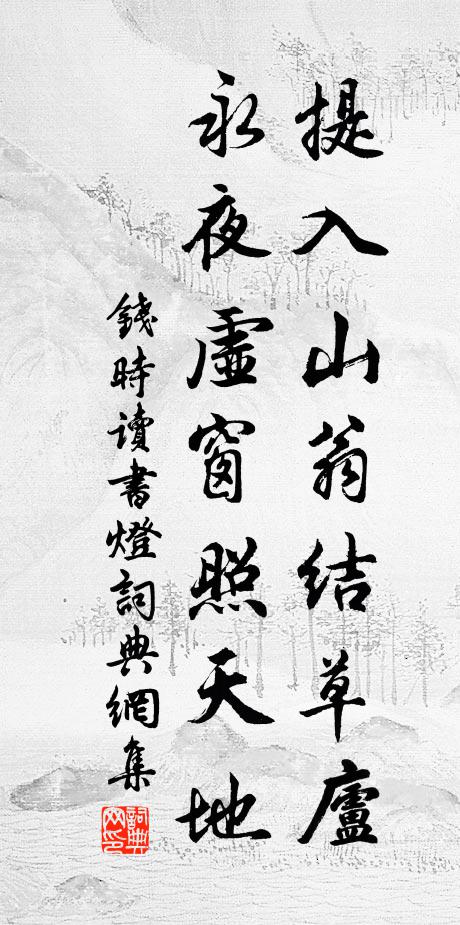 提入山翁结草廬
永夜虛窗照天地
錢時讀書燈詞典網集
詞典網印